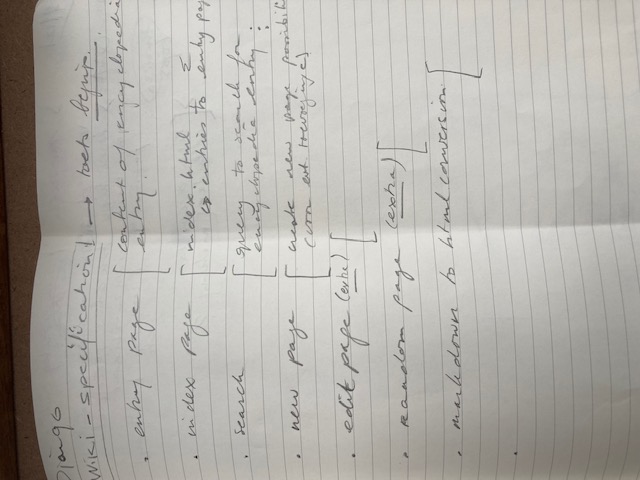 Django
Wiki - specification! → toets begrip.
. entry page [ content of encyclopedia
entry.
. index page [ index.html Σ
↳ entries to entry pag
. search [ query to search for
encyclopedia entry :
. new page [ create new page possibili
. edit page (extra) [
. Random page (extra) [
. markdown to html conversion [
.